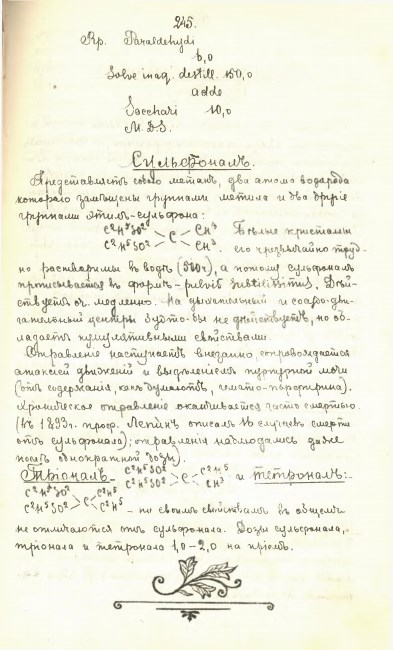 245.
Rp. Paraldehydi
6,0
Solve in aq. destill. 150,0
adde
Sacchari 10,0
M. D.S.
Сульфоналъ.
Представляетъ собою метанъ, два атома водорода
котораго замѣщены группами метила и два другіе
группами этилъ-сульфона:
C²H⁵SO² CH³
C Бѣлые кристаллы
C²H⁵SO² CH³. его чрезвычайно труд-
но растворимы въ водѣ (500ч), а потому сульфоналъ
прописывается въ формѣ pulvis subtilissimus. Дѣй-
ствуетъ оч. медленно. На дыхательный и сосудо-дви-
гательный центры будто-бы не дѣйствуетъ, но об-
ладаетъ кумулятивными свойствами.
Отравленіе наступаетъ внезапно, сопровождается
атаксіей движеній и выдѣленіемъ пурпурной мочи
(отъ содержанія, какъ думаютъ, гемато-порфирина).
Хроническое отравленіе оканчивается часто смертью
(въ 1893г. проф. Лепинъ описалъ 16 случаевъ смерти
отъ сульфонала); отравленія наблюдались даже
послѣ однократной дозы).
Тріоналъ C²H⁵SO² C²H⁵
C²H⁵SO² C CH³ и тетроналъ:-
C²H⁵SO² C²H⁵
C²H⁵SO² C C²H⁵ - по своимъ свойствамъ въ общемъ
не отличаются отъ сульфонала. Дозы сульфонала,
тріонала и тетронала 1,0-2,0 на пріемъ.